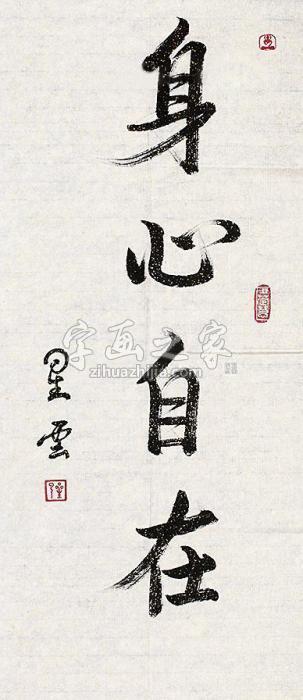 身心自在
星雲
字画之家
zihuazhijia.com